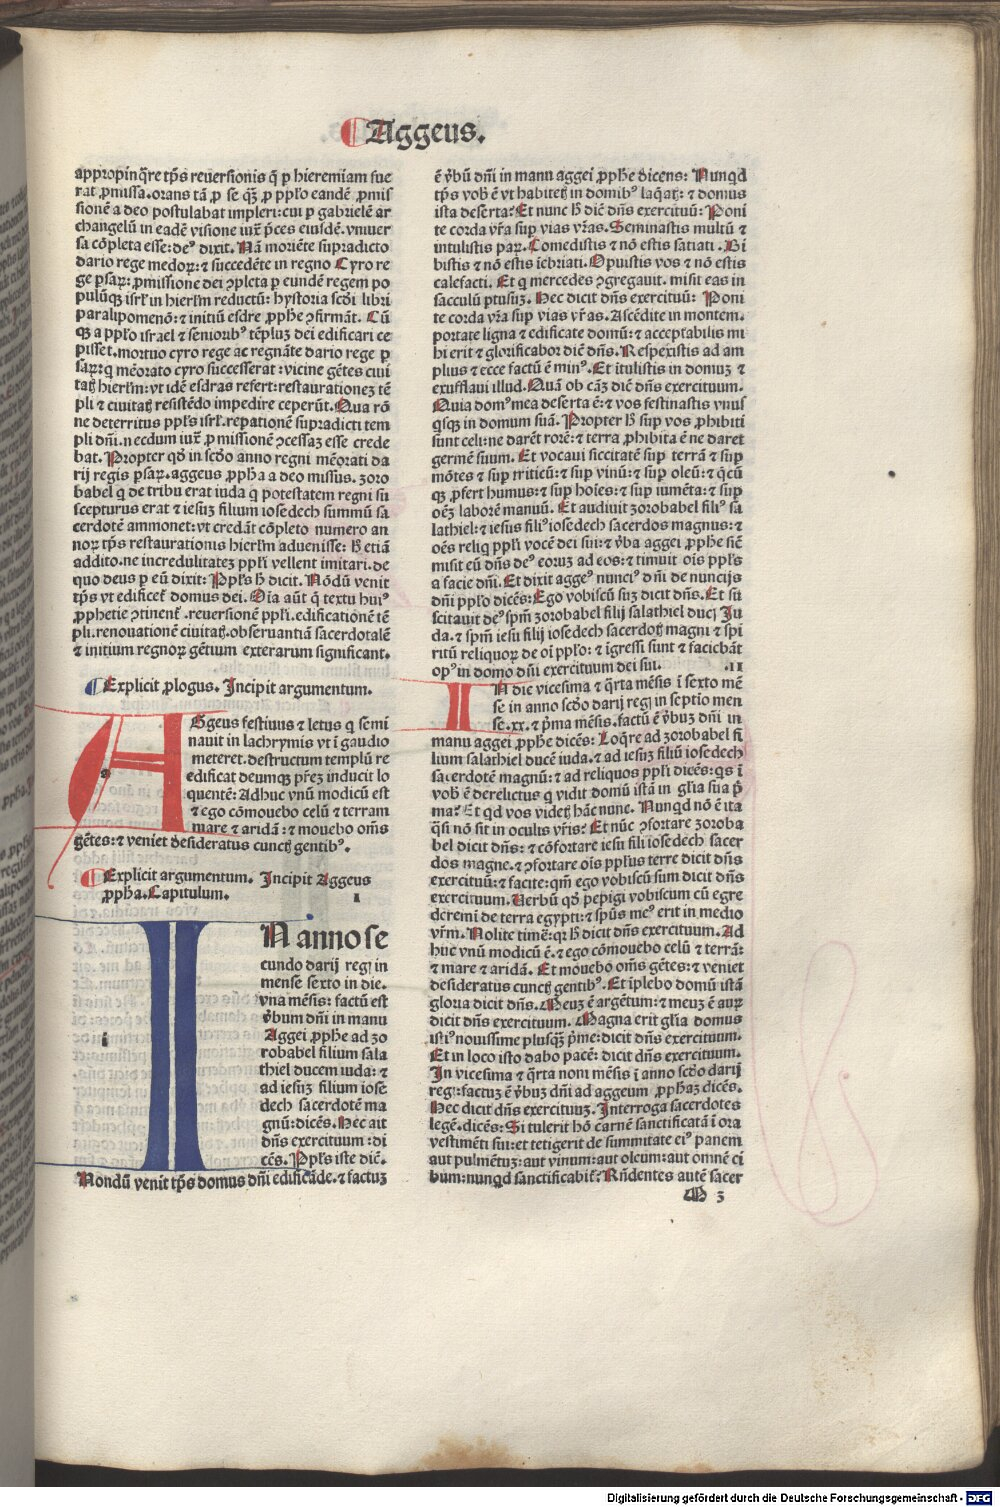 Aggeus.
appropinq̄re tp̄s reuersionis q̄ p hieremiam fue
rat ꝓmissa.orans tā ꝓ se qȝ ꝓ ppl̄o eandē ꝓmis
sionē a deo postulabat impleri:cui p gabrielē ar
changelū in eadē visione iux̄ p̄ces eiusdē.vniuer
sa cōpleta esse:de⁹ dixit. Nā moriēte supradicto
dario rege medoꝝ:⁊ succedēte in regno Cyro re
ge p̄saꝝ:ꝓmissione dei ꝯpleta p eundē regem po
pulūqȝ isrl̄ in hierl̄m reductū: hystoria scd̄i libri
paralipomenō:⁊ initiū esdre ꝓphe ꝯfirmāt. Cū
qȝ a ppl̄o israel ⁊ seniorib⁹ tēpluȝ dei edificari ce
pisset.mortuo cyro rege ac regnāte dario rege p
saꝝ:q mēorato cyro successerat:vicine gētes ciui
tatꝭ hierl̄m:vt idē esdras refert:restaurationeȝ tē
pli ⁊ ciuitatꝭ resistēdo impedire ceperūt.Qua rō
ne deterritus ppl̄s isrl̄.repationē supradicti tem
pli dn̄i.necdum iux̄ ꝓmissionē ꝯcessaȝ esse crede
bat. Propter qd̄ in scd̄o anno regni mēorati da
rij regis p̄saꝝ.aggeus ꝓpha a deo missus. zoro
babel q de tribu erat iuda q̄ potestatem regni su
scepturus erat ⁊ iesuȝ filium iosedech summū sa
cerdotē ammonet:vt credāt cōpleto numero an
noꝝ tp̄s restaurationis hierl̄m aduenisse: hꝫ etiā
addito.ne incredulitateȝ ppl̄i vellent imitari.de
quo deus p eū dixit: Ppl̄s hꝫ dicit. Nōdū venit
tp̄s vt edificet̄ domus dei. Qia aūt q̄ textu hui⁹
ꝓphetie ꝯtinent̄.reuersionē ppl̄i.edificationē tē
pli.renouationē ciuitatꝭ.obseruantiā sacerdotalē
⁊ initium regnoꝝ gētium exterarum significant.
Explicit ꝓlogus. Incipit argumentum.
AGgeus festiuus ⁊ letus q semi
nauit in lachrymis vt ī gaudio
meteret.destructum templū re
edificat deumqȝ pr̄eȝ inducit lo
quentē: Adhuc vnū modicū est
⁊ ego cōmouebo celū ⁊ terram
mare ⁊ aridā: ⁊ mouebo om̄s
gētes:⁊ veniet desideratus cunctꝭ gentib⁹.
Explicit argumentum. Incipit Aggeus
ꝓpha.Capitulum. I
IN anno se
cundo darij regꝭ in
mense sexto in die.
vna mēsis: factū est
v̄bum dn̄i in manu
Aggei ꝓphe ad zo
robabel filium sala
thiel ducem iuda: ⁊
ad iesuȝ filium iose
dech sacerdotē ma
gnū:dicēs. Hec ait
dn̄s exercituum:di
cēs. Ppl̄s iste dic̄.
Nondū venit tp̄s domus dn̄i edificāde.⁊ factuȝ
ē v̄bū dn̄i in manu aggei ꝓphe dicens: Nunqd
tp̄s vob̄ ē vt habitetꝭ in domib⁹ laq̄atꝭ: ⁊ domus
ista deserta? Et nunc hꝫ dic̄ dn̄s exercituū: Poni
te corda vr̄a sup vias vr̄as. Seminastis multū ⁊
intulistis paꝝ. Comedistis ⁊ nō estis satiati. Bi
bistis ⁊ nō estis īebriati. Opuistis vos ⁊ nō estis
calefacti. Et q mercedes ꝯgregauit. misit eas in
sacculū ptusuȝ. Hec dicit dn̄s exercituū: Poni
te corda vr̄a sup vias vr̄as. Ascēdite in montem.
portate ligna ⁊ edificate domū: ⁊ acceptabilis mi
hi erit ⁊ glorificabor dic̄ dn̄s. Respexistis ad am
plius ⁊ ecce factū ē min⁹. Et itulistis in domuȝ ⁊
exufflaui illud. Quā ob cāȝ dic̄ dn̄s exercituum.
Quia dom⁹ mea deserta ē: ⁊ vos festinastis vnus
qsqȝ in domum suā. Propter hꝫ sup vos ꝓhibiti
sunt celi:ne darēt rorē: ⁊ terra ꝓhibita ē ne daret
germē suum. Et vocaui siccitatē sup terrā ⁊ sup
mōtes ⁊ sup triticū: ⁊ sup vinū: ⁊ sup oleū: ⁊ q̄cū
qȝ ꝓfert humus: ⁊ sup hoīes: ⁊ sup iumēta: ⁊ sup
oēȝ laborē manuū. Et audiuit zorobabel fili⁹ sa
lathiel: ⁊ iesus fili⁹ iosedech sacerdos magnus: ⁊
oēs reliq ppl̄i vocē dei sui: ⁊ v̄ba aggei ꝓphe sic̄
misit eū dn̄s de⁹ eoruȝ ad eos: ⁊ timuit oīs ppl̄s
a facie dn̄i. Et dixit agge⁹ nunci⁹ dn̄i de nuncijs
dn̄i ppl̄o dicēs: Ego vobiscū suȝ dicit dn̄s. Et su
scitauit de⁹ sp̄m zorobabel filij salathiel ducꝭ Ju
da. ⁊ sp̄m iesu filij iosedech sacerdotꝭ magni ⁊ spi
ritū reliquoꝝ de oī ppl̄o: ⁊ īgressi sunt ⁊ faciebāt
op⁹ in domo dn̄i exercituum dei sui. II
IN die vicesima ⁊ q̄rta mēsis ī sexto mē
se in anno scd̄o darij regꝭ in septio men
se.xx. ⁊ p̄ma mēsis. factū ē v̄buȝ dn̄i in
manu aggei ꝓphe dicēs: Loq̄re ad zorobabel fi
lium salathiel ducē iuda. ⁊ ad iesuȝ filiū iosedech
sacerdotē magnū: ⁊ ad reliquos ppl̄i dicēs: qs ī
vob̄ ē derelictus q vidit domū istā in gl̄ia sua p̄
ma? Et qd vos videtꝭ hāc nunc. Nunqd nō ē ita
q̄si nō sit in oculis vr̄is? Et nūc ꝯfortare zoroba
bel dicit dn̄s: ⁊ cōfortare iesu fili iosedech sacer
dos magne. ⁊ ꝯfortare oīs ppl̄us terre dicit dn̄s
exercituū: ⁊ facite: qm̄ ego vobiscū sum dicit dn̄s
exercituum. Verbū qd̄ pepigi vobiscum cū egre
deremī de terra egypti: ⁊ sp̄us me⁹ erit in medio
vr̄m. Nolite timēr̄: qꝛ hꝫ dicit dn̄s exercituum. Ad
huc vnū modicū ē. ⁊ ego cōmouebo celū ⁊ terrā:
⁊ mare ⁊ aridā. Et mouebo om̄s gētes: ⁊ veniet
desideratus cunctꝭ gentib⁹. Et īplebo domū istā
gloria dicit dn̄s. Meuȝ ē argētum: ⁊ meuȝ ē auꝝ
dicit dn̄s exercituum. Magna erit gl̄ia domus
isti⁹ nouissime plusqȝ p̄me:dicit dn̄s exercituum.
Et in loco isto dabo pacē: dicit dn̄s exercituum.
In vicesima ⁊ q̄rta noni mēsis ī anno scd̄o darij
regꝭ:factuȝ ē v̄buȝ dn̄i ad aggeum ꝓphaȝ dicēs.
Hec dicit dn̄s exercituuȝ. Interroga sacerdotes
legē.dicēs: Si tulerit hō carnē sanctificatā ī ora
vestimēti sui: et tetigerit de summitate ei⁹ panem
aut pulmētuȝ: aut vinum: aut oleum: aut omnē ci
bum: nunqd sanctificabit̄? Rn̄dentes autē sacer
M 3
Digitalisierung gefördert durch die Deutsche Forschungsgemeinschaft - DFG